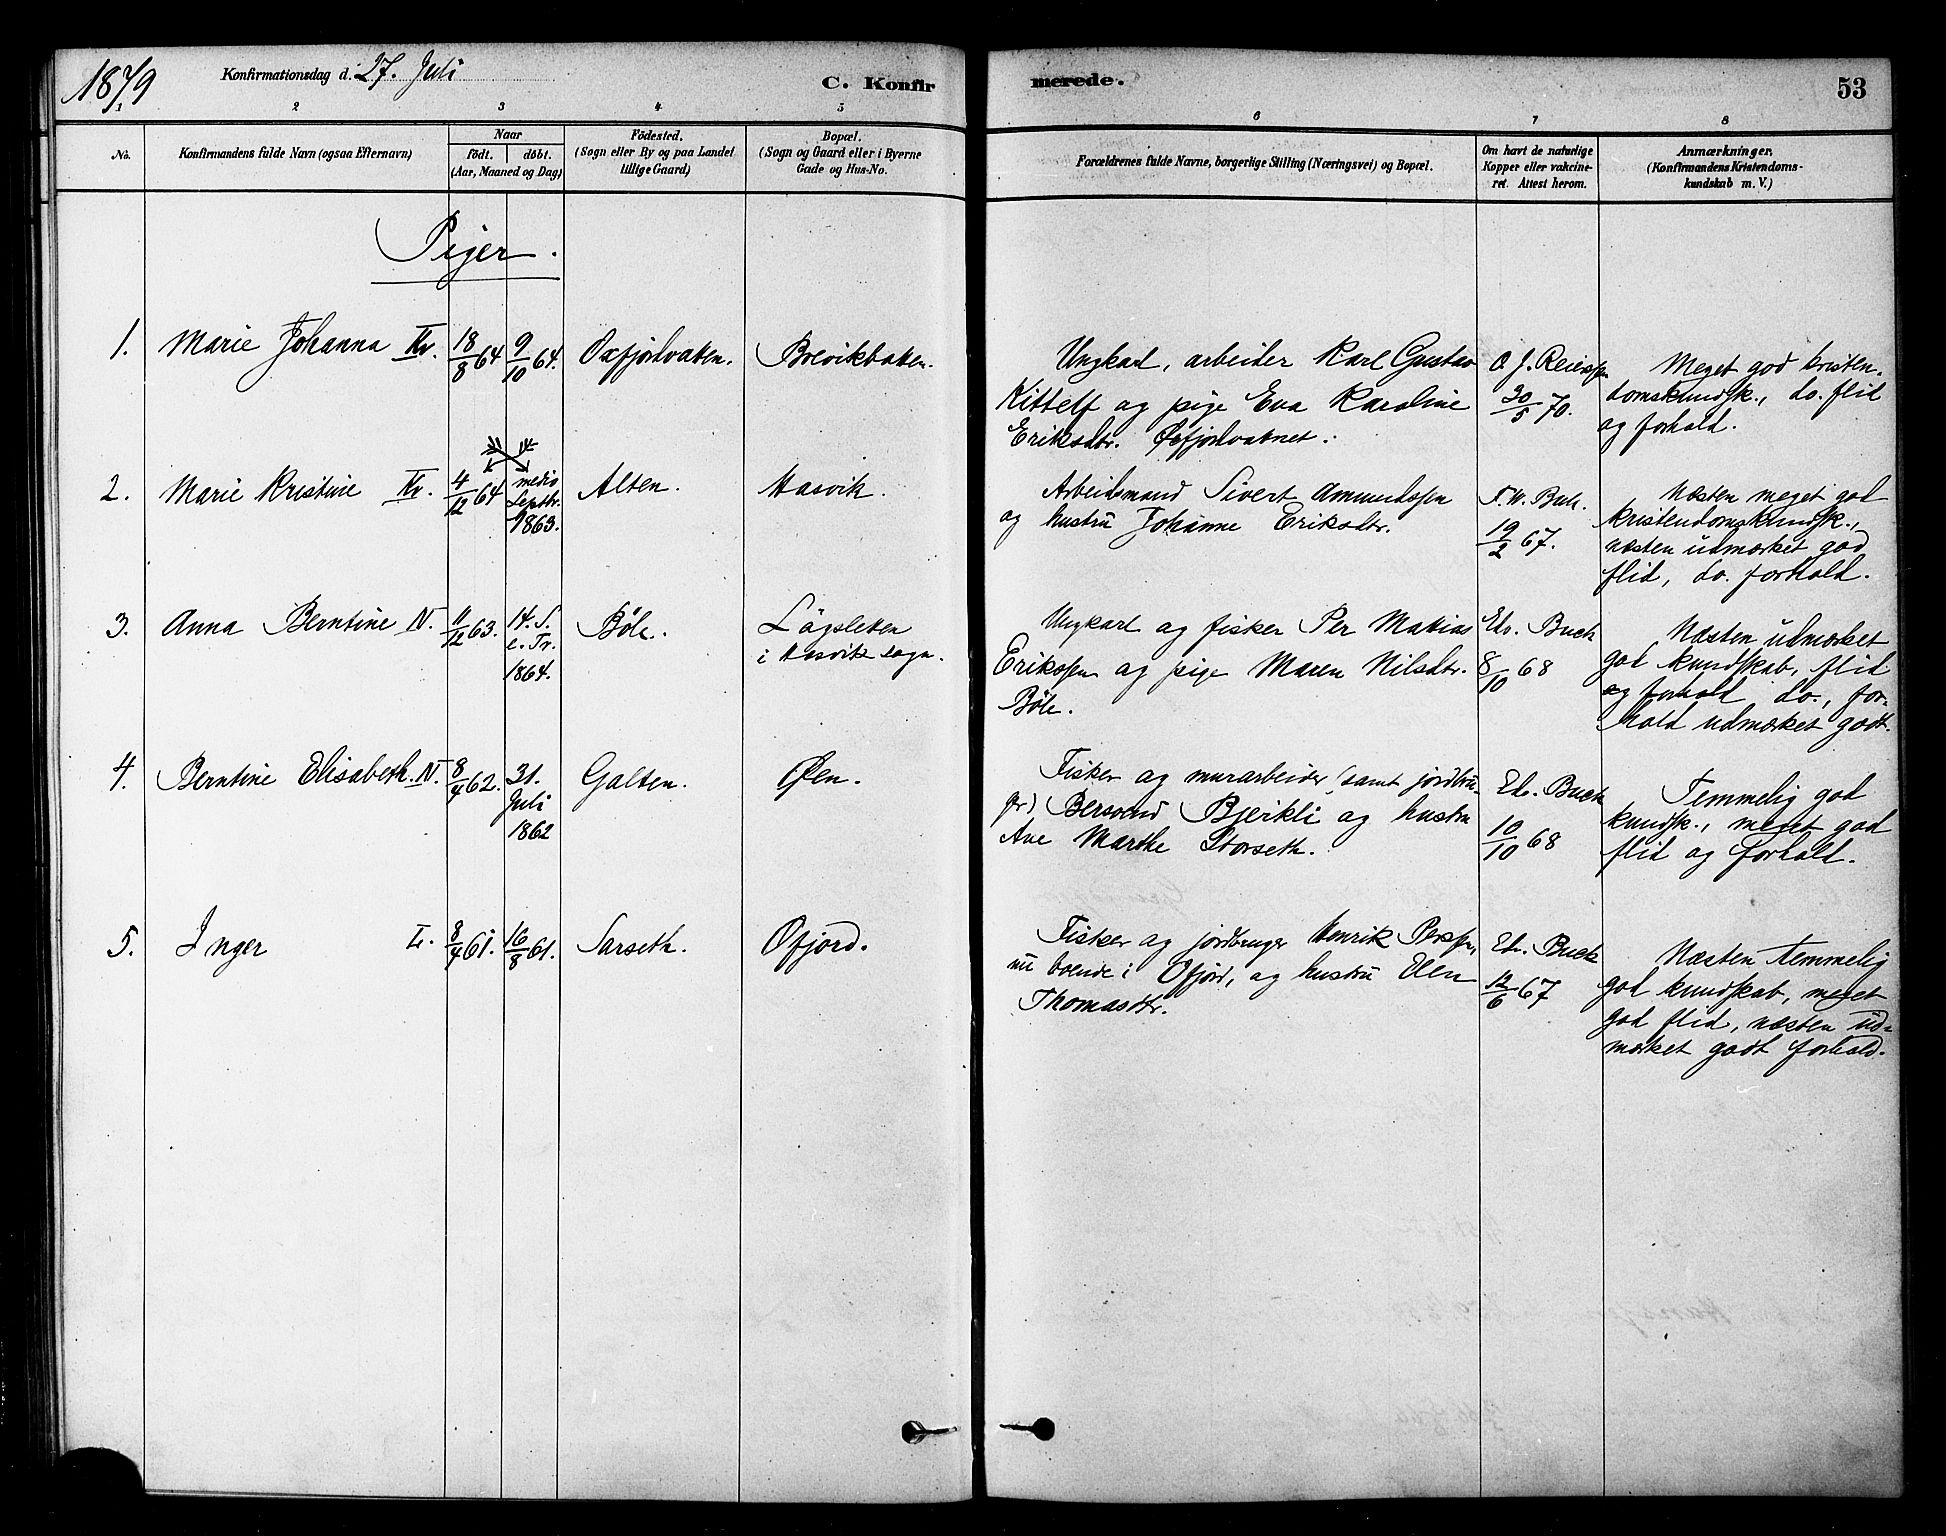 1879 Konfirmationsdag d. 27. Juli C. Konfir merede. 53
1 2 3 4 5 6 7 8
No.
Konfirmandens fulde Navn (ogsaa Efternavn)
Naar
födt. döbt.
(Aar, Maaned og Dag)
Födested.
(Sogn eller By og paa Landet
tillige Gaard)
Bopæl.
(Sogn og Gaard eller i Byerne
Gade og Hus-No.
Forældrenes fulde Navne, borgerlige Stilling (Næringsvei) og Bopæl.
Om havt de naturlige
Kopper eller vakcine-
ret. Attest herom.
Anmærkninger,
(Konfirmandens Kristendoms-
kundskab m. V.)
Piger.
1. Marie Johanna Kv. 18/8 64 9/10 64. Oxfjordvatten. Brevikbaken.
Ungkarl, arbeider Karl Gustav
Kittelf og pige Eva Karoline
Eriksdtr. Øxfjordvatnet.
O. J. Reierssen
30/5 70.
Meget god kristen-
domskundsk., do. flid
og forhold.
2. Marie Kristine Kv. 4/12 64 medio
Septbr.
1863.
Alten. Hasvik.
Arbeidsmand Sivert Amundssen
og hustru Johanne Eriksdtr.
F. W. Buck.
19/2 67.
Næsten meget god
kristendomskundsk.,
næsten udmærket god
flid, do. forhold.
3. Anna Berntine N. 11/12 63. 14. S.
e. Tr.
1864.
Böle. Lögsleten
i Hasvik sogn.
Ungkarl og fisker Per Matias
Erikssen og pige Maren Nilsdtr.
Böle.
Edv. Buck
8/10 68
Næsten udmærket
god kundskab, flid
og forhold do., for-
hold udmærket godt.
4. Berntine Elisabeth. N. 8/4 62. 31.
Juli
1862
Galten. Øen.
Fisker og murarbeider (samt jordbru-
ger) Bersvend Bjerkli og hustru
Ane Marthe Storseth.
Edv. Buck
10/10 68
Temmelig god
kundsk., meget god
flid og forhold.
5. Inger L. 8/4 61. 16/8 61. Sarseth. Ofjord.
Fisker og jordbruger Henrik Perssen,
nu boende i Ofjord, og hustru Elen
Thomasdtr.
Edv. Buck
12/6 67
Næsten temmelig
god kundskab, meget
god flid, næsten ud-
mærket godt forhold.